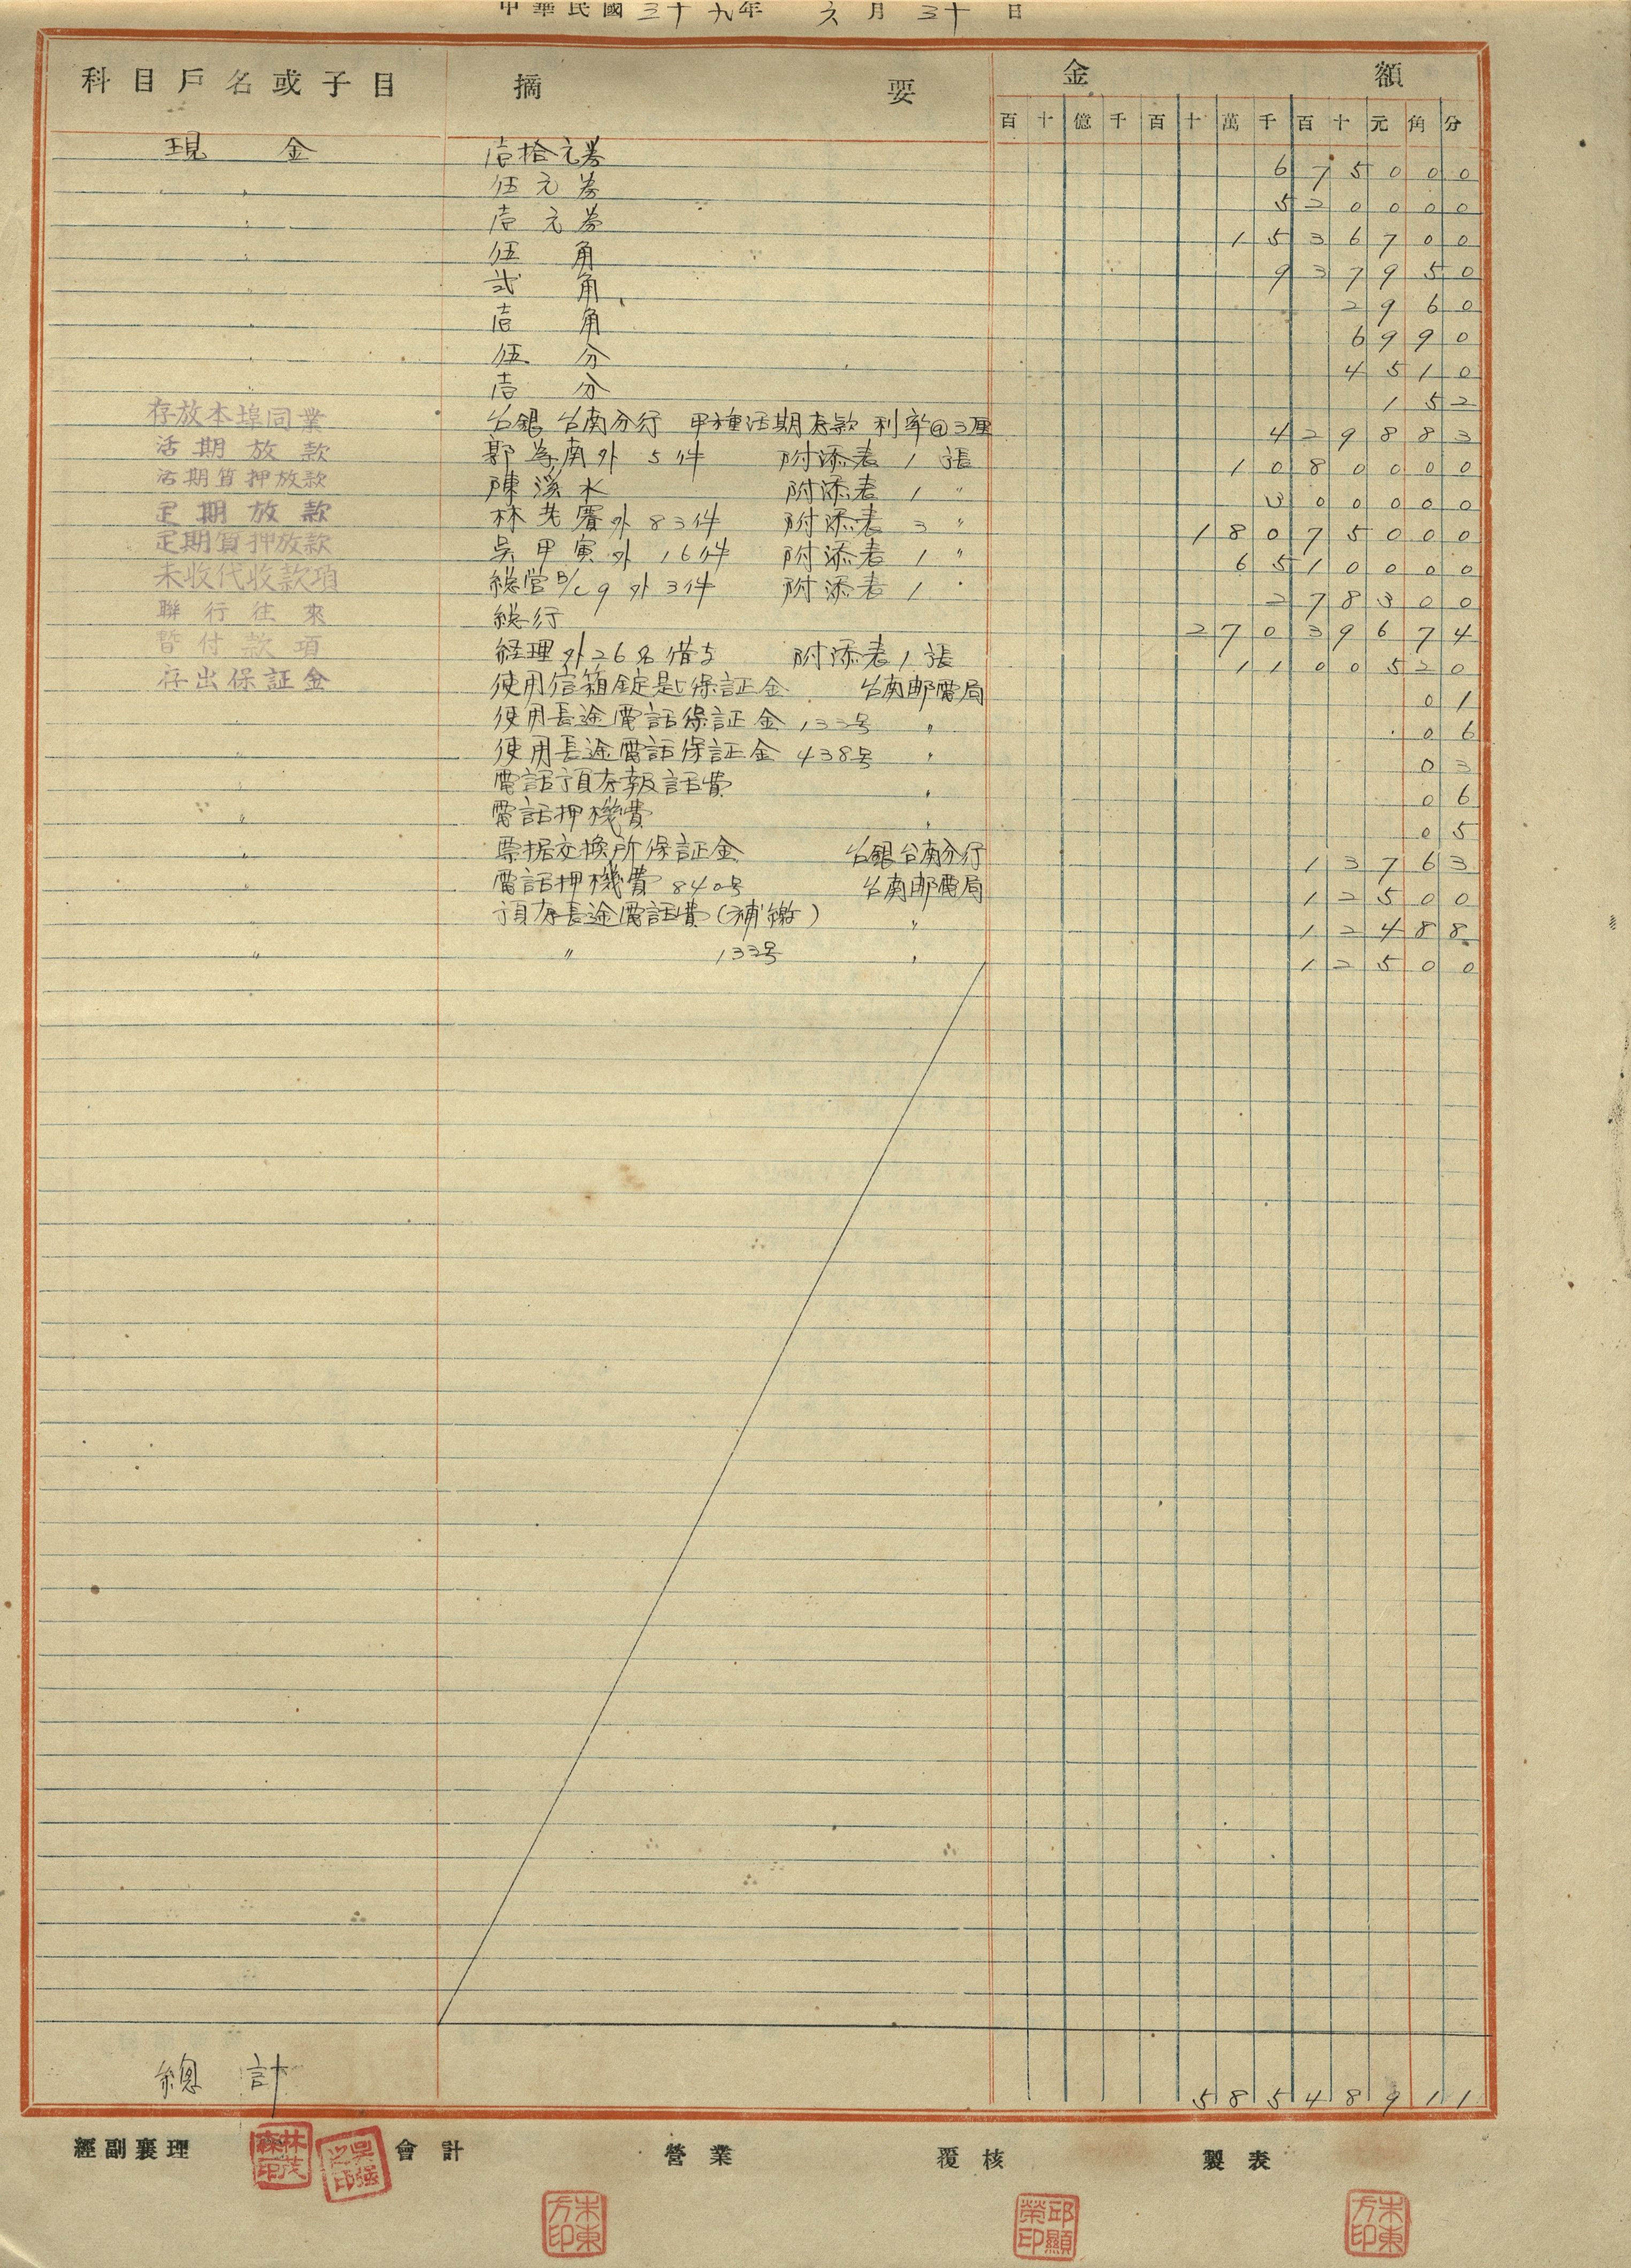 中華民國三十九年 六月 三十 日
科目戶名或子目 摘 要 金 額
百十億千百十萬千百十元角分
現 金 壱拾元券 6750 0 0
〃 伍元券 5200 0 0
〃 壱元券 15367 0 0
〃 伍 角 9379 5 0
〃 弍 角 29 6 0
〃 壱 角 699 0
〃 伍 分 45 1 0
〃 壱 分 1 5 2
存放本埠同業 台銀 台南分行 甲種活期存款 利率@3厘 4298 8 3
活期放款 郭為南外 5件 附添表 1 張 10800 0 0
活期質押放款 陳溪水 附添表 1 〃 3000 0 0
定期放款 林先賽外 83件 附添表 3 〃 180750 0 0
定期質押放款 吳甲寅外 16件 附添表 1 〃 65100 0 0
未收代收款項 總營B/C 9 外 3件 附添表 1 〃 2783 0 0
聯行往來 總行 270396 7 4
暫付款項 経理外26名借支 附添表 1 張 11005 2 0
存出保証金 使用信箱錠匙保証金 台南郵電局 0 1
使用長途電話保証金 133号 〃 0 6
〃 使用長途電話保証金 438号 〃 0 3
〃 電話預存報話費 〃 0 6
〃 電話押機費 〃 0 5
〃 票据交換所保証金 台銀台南分行 137 6 3
〃 電話押機費 840号 台南郵電局 125 0 0
〃 預存長途電話費(補繳) 〃 124 8 8
〃 〃 133号 〃 125 0 0
總 計 585489 1 1
經副襄理 會計 營業 覆核 製表
林茂森印
吳強之印
朱東方印
邱顯榮印
朱東方印